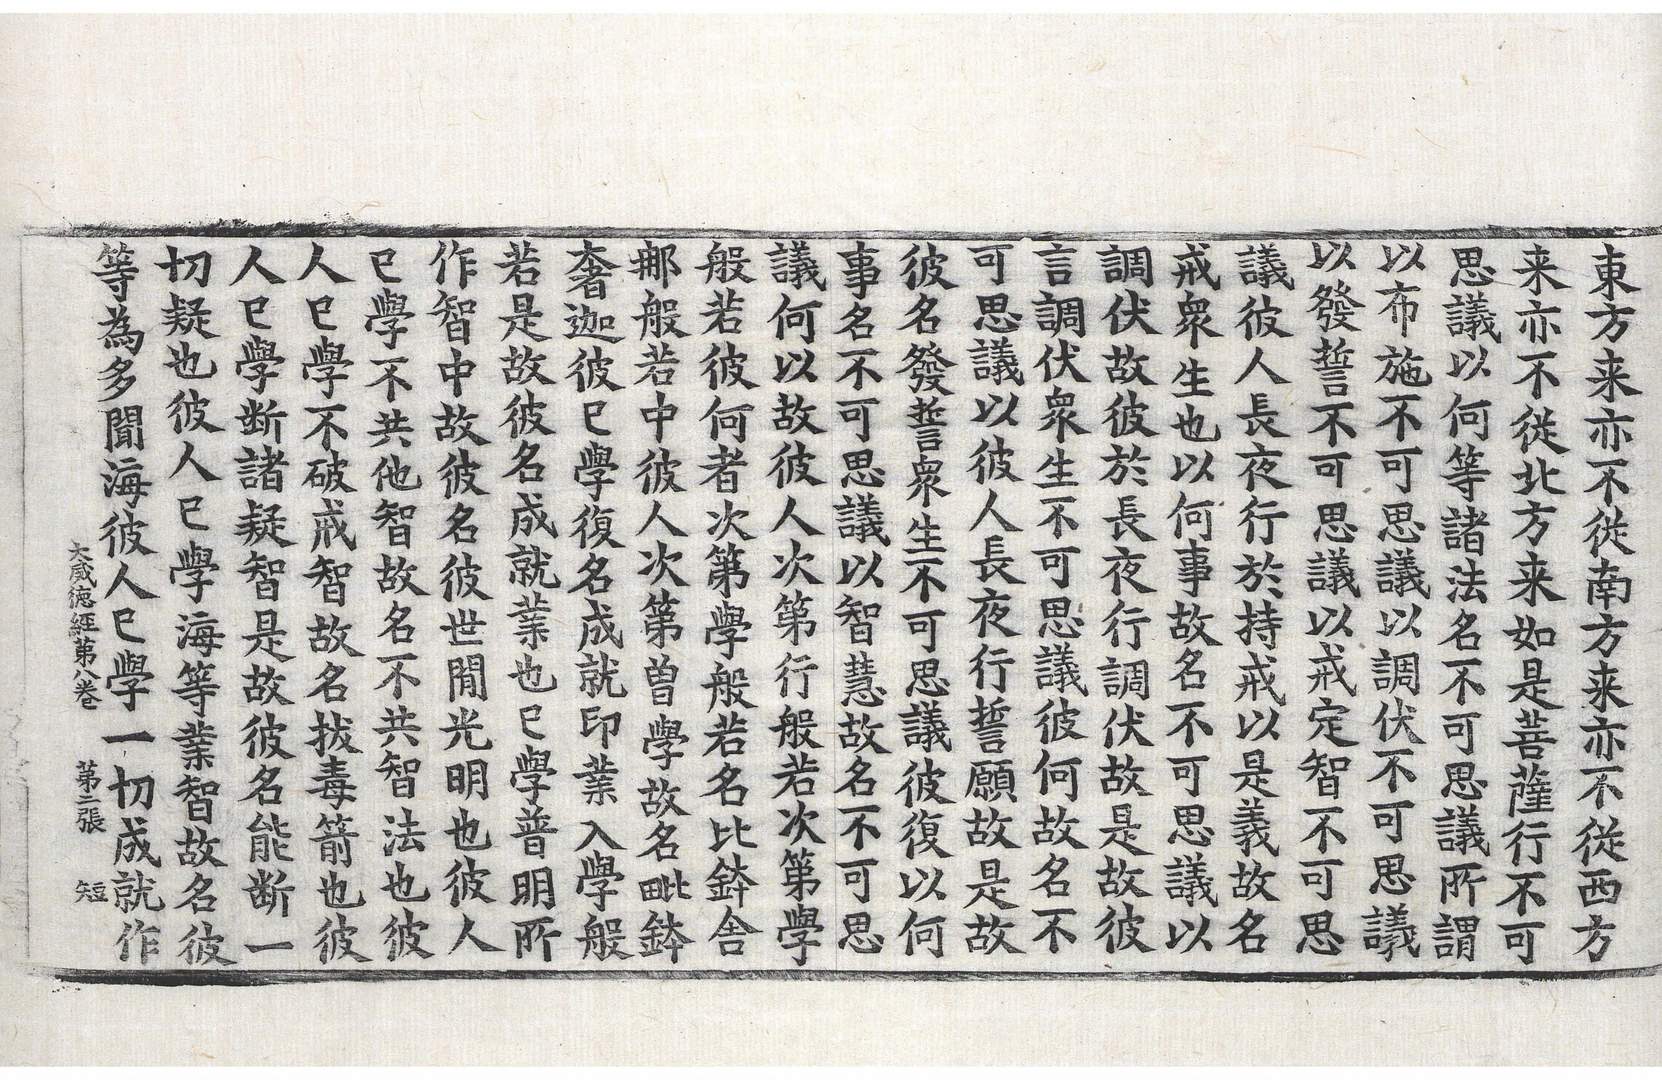 東方来亦不從南方来亦不從西方
来亦不從北方来如是菩薩行不可
思議以何等諸法名不可思議所謂
以布施不可思議以調伏不可思議
以發誓不可思議以戒定智不可思
議彼人長夜行於持戒以是義故名
戒衆生也以何事故名不可思議以
調伏故彼於長夜行調伏故是故彼
言調伏衆生不可思議彼何故名不
可思議以彼人長夜行誓願故是故
彼名發誓衆生不可思議彼復以何
事名不可思議以智慧故名不可思
議何以故彼人次第行般若次第學
般若彼何者次第學般若名比鉢舍
那般若中彼人次第曽學故名毗鉢
奢迦彼已學復名成就印業入學般
若是故彼名成就業也已學普明所
作智中故彼名彼世閒光明也彼人
已學不共他智故名不共智法也彼
人已學不破戒智故名拔毒箭也彼
人已學断諸疑智是故彼名能断一
切疑也彼人已學海等業智故名彼
等為多聞海彼人已學一切成就作
大威徳經第八卷 第二張 短